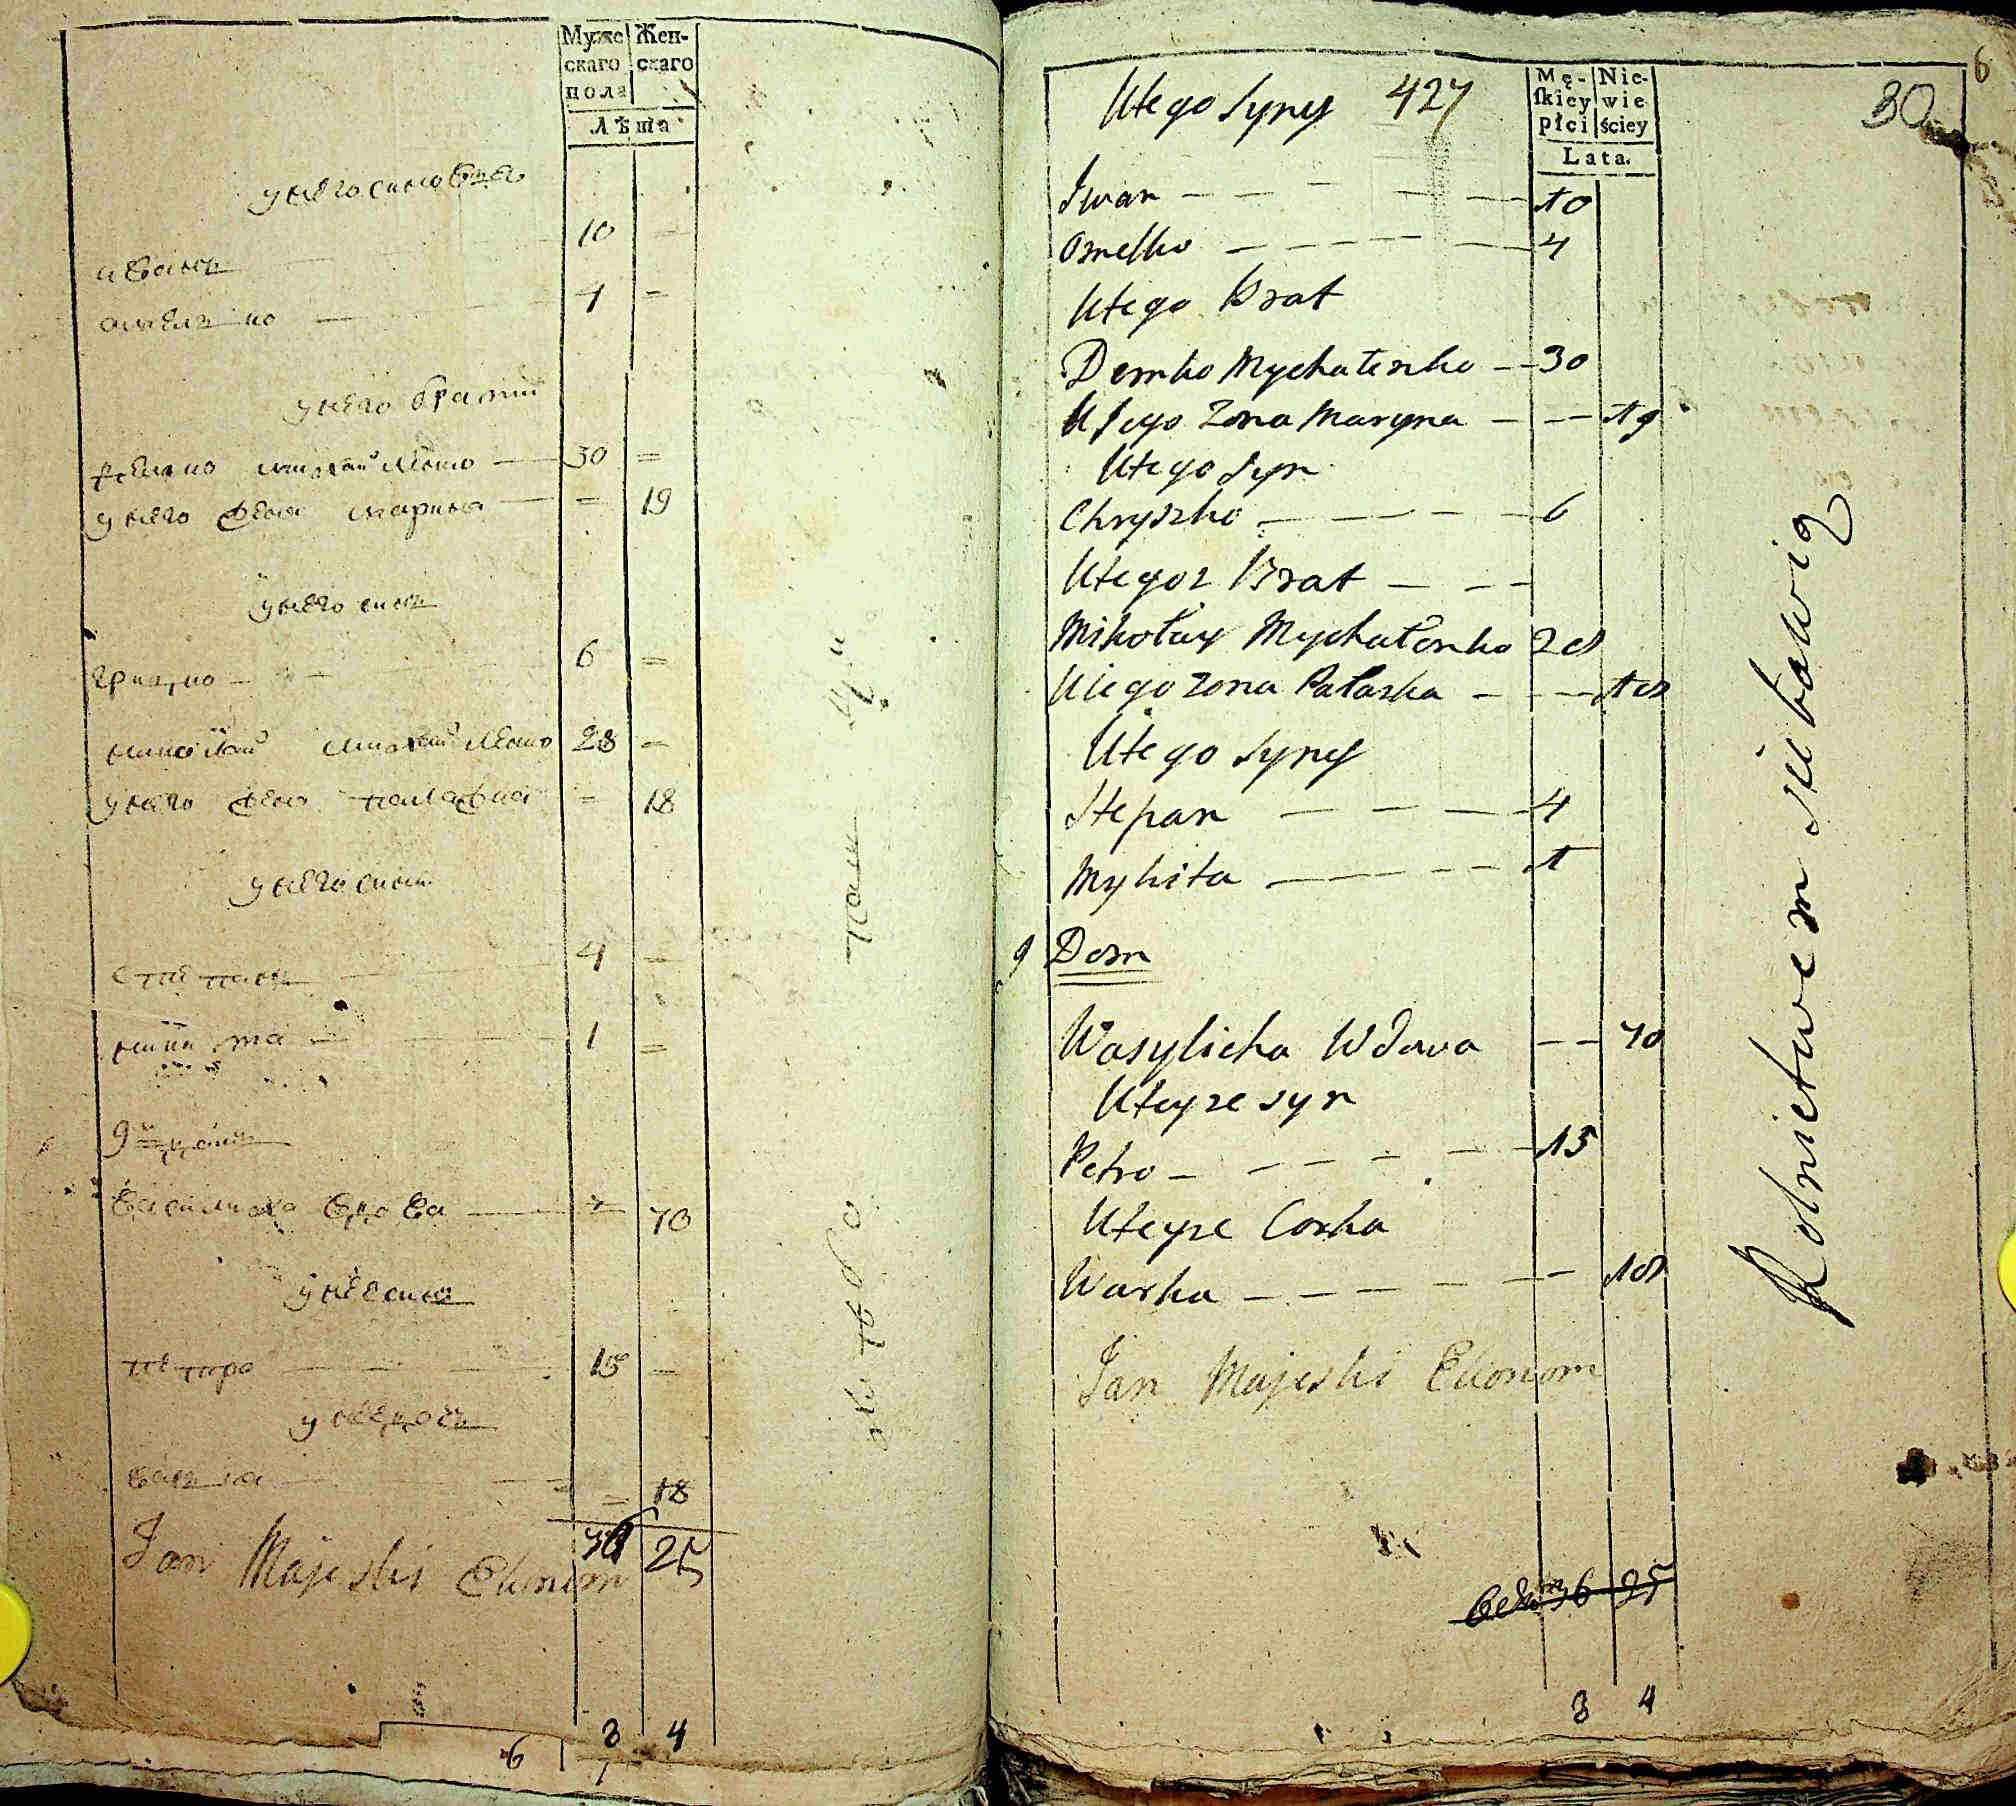 Муже Жен-
скаго скаго
пола
Лѣта
у него синовя
иванъ 10 =
омелко 4 =
у него братъ
демко михайленко 30 =
у него жена марина = 19
у него синъ
грицко 6 =
николай михайленко 28 =
у него жена палажка = 18
у него сини
степанъ 4 =
микита 1 =
9 Домъ
василиха вдова 70
у нее синъ
петро 15 =
у нее дочь
варка = 18
36 25
Jan Majeski Ekonom
3 4
6
6
30
Utego Syny 427
Mę- Nie-
skiey wie
płci ściey
Lata.
Iwan 10
Omelko 4
Utego Brat
Demko Mychałenko 30
Utego Zona Maryna 19
Utego Syn
Chryszko 6
Utegoz Brat
Mikołay Mychałenko 28
Utego zona Pałaszka 18
Utego Syny
Stepan 4
Mykita 1
9 Dom
Wasylicha Wdowa 70
Uteyze syn
Petro 15
Uteyze Corka
Warka 18
Jan Majeski Ekonom
36 25
3 4
Rolnictwem się bawią